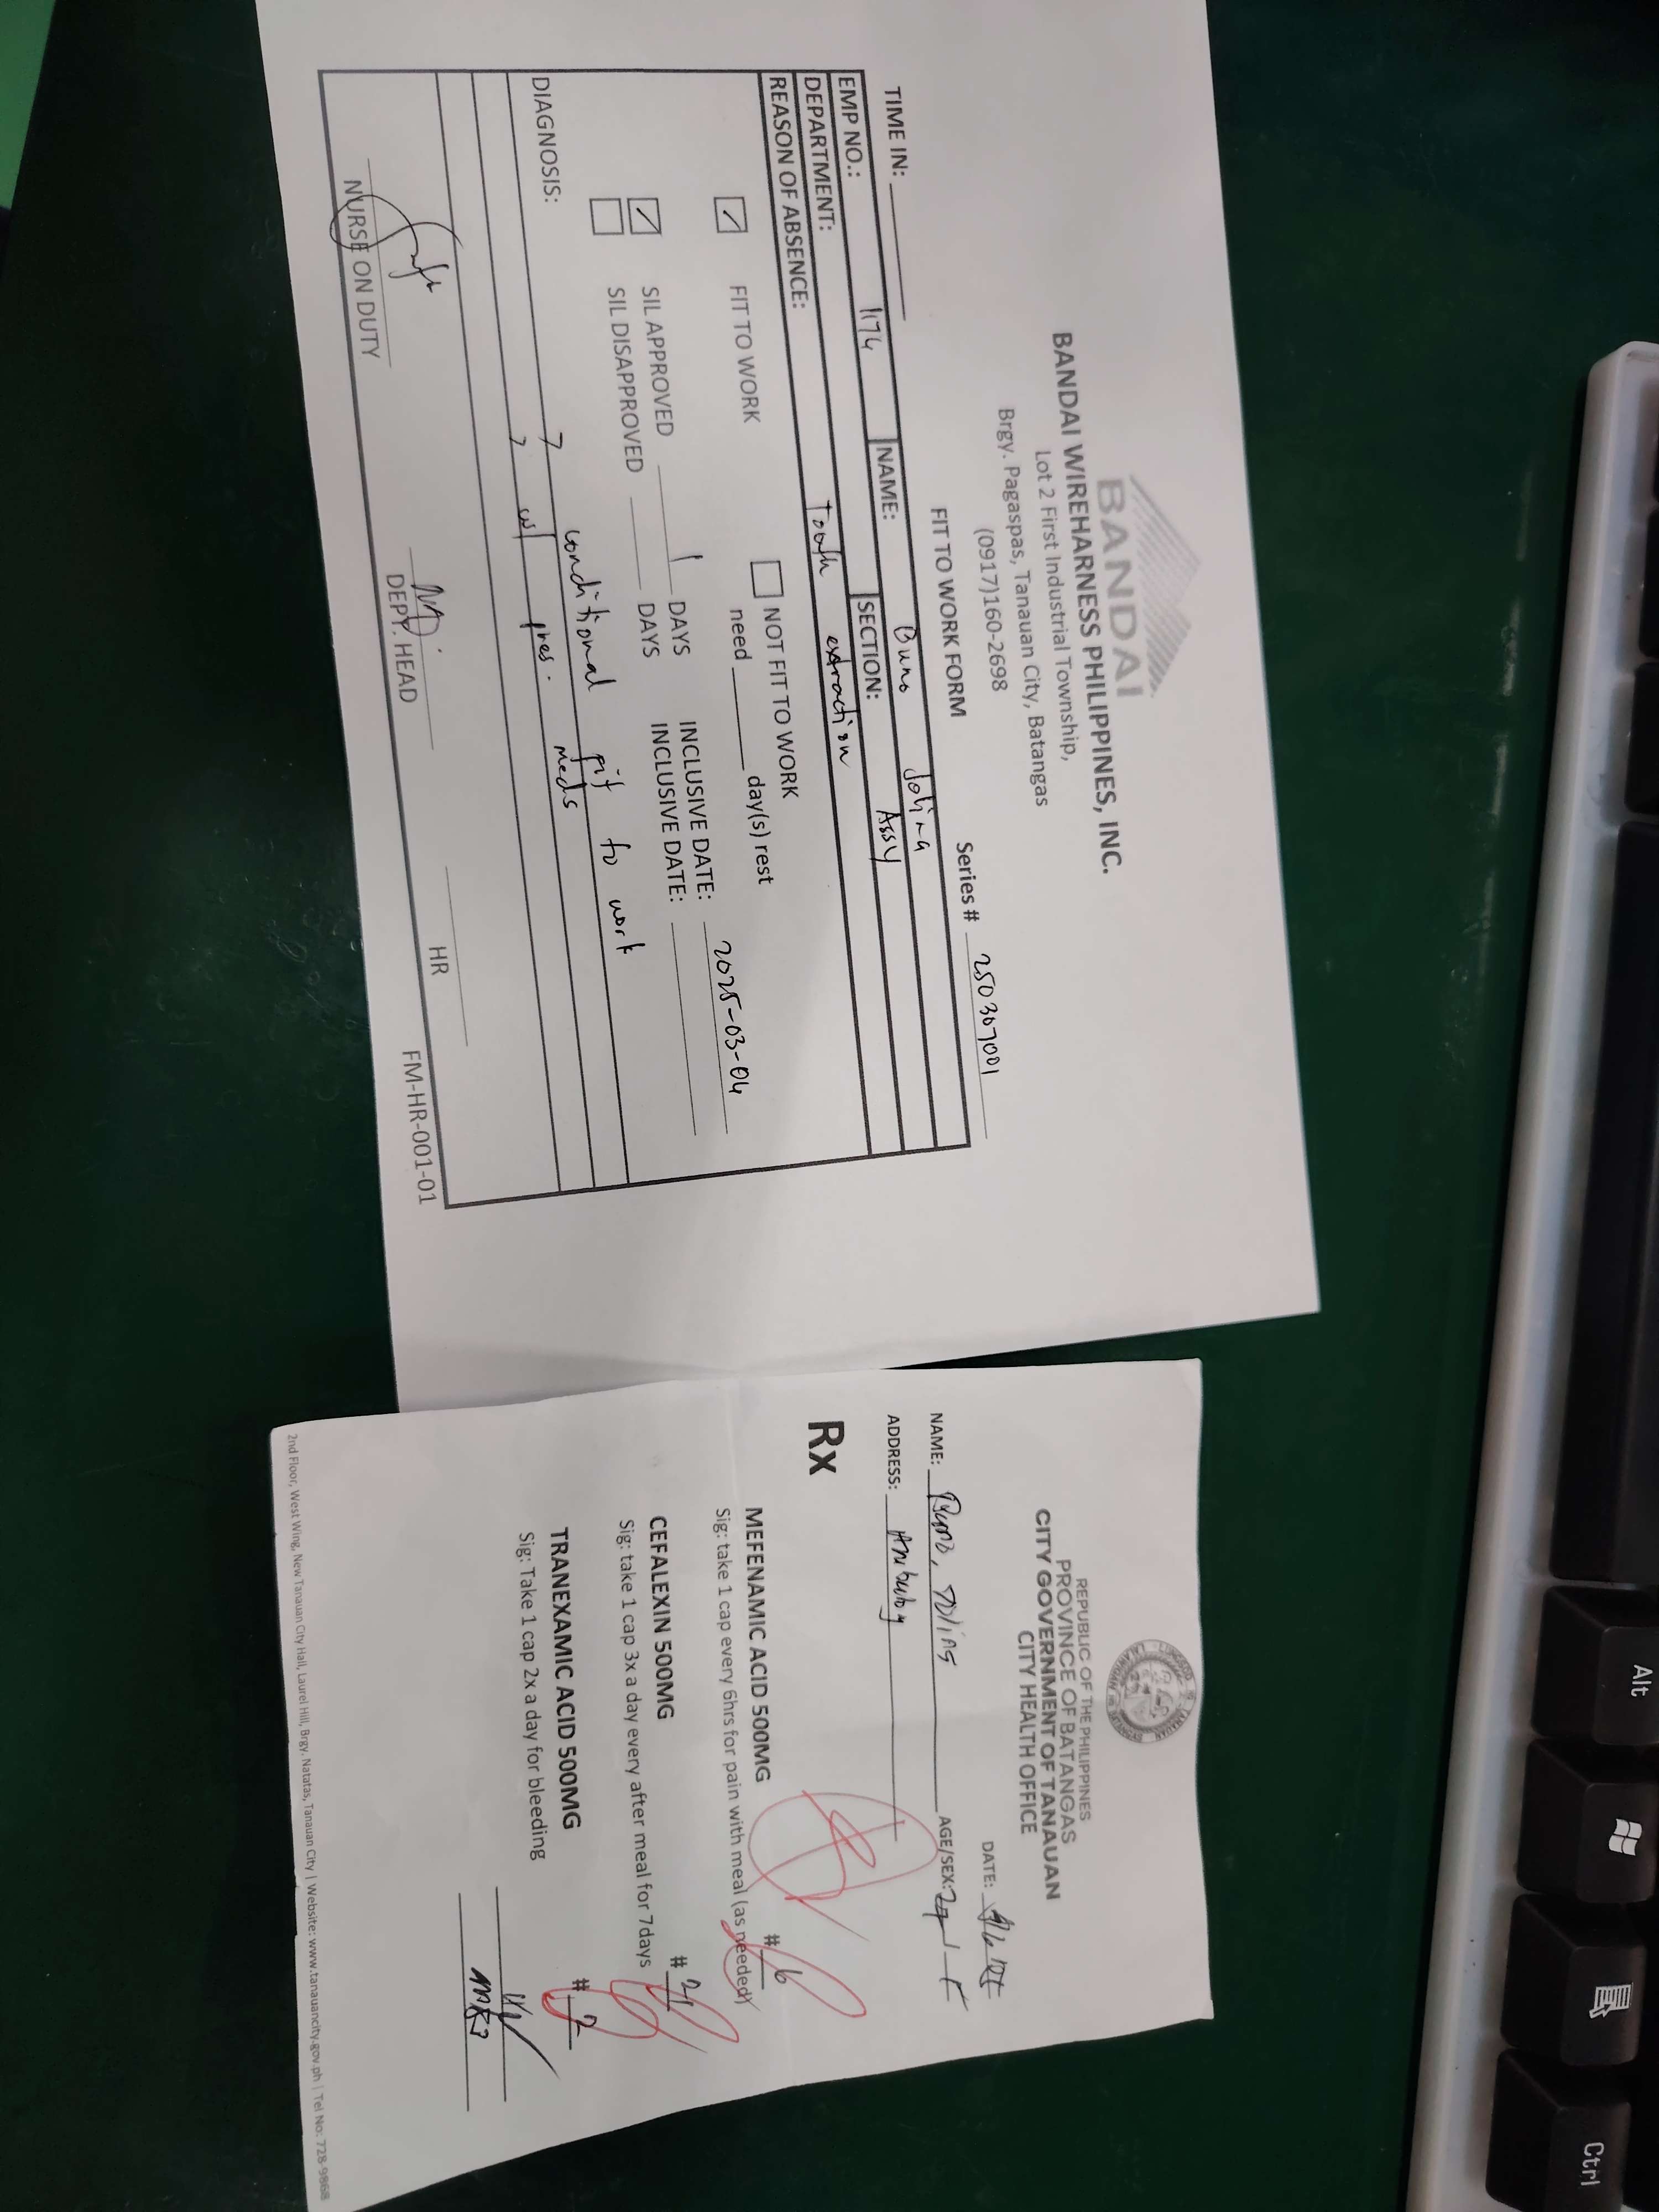 BANDAI
BANDAI WIREHARNESS PHILIPPINES, INC.
Lot 2 First Industrial Township,
Brgy. Pagaspas, Tanauan City, Batangas
(0917)160-2698
FIT TO WORK FORM
Series # 250307001
TIME IN:
EMP NO.: 1174 NAME: Buno Jolina
DEPARTMENT: SECTION: Assy
REASON OF ABSENCE: Tooth extraction
FIT TO WORK
NOT FIT TO WORK
need day(s) rest
SIL APPROVED 1 DAYS INCLUSIVE DATE: 2025-03-04
SIL DISAPPROVED DAYS INCLUSIVE DATE:
DIAGNOSIS: conditional fit to work
w/ pres. meds
NURSE ON DUTY
DEPT. HEAD
HR
FM-HR-001-01
REPUBLIC OF THE PHILIPPINES
PROVINCE OF BATANGAS
CITY GOVERNMENT OF TANAUAN
CITY HEALTH OFFICE
DATE:
NAME: AGE/SEX:
ADDRESS:
Rx
MEFENAMIC ACID 500MG # 6
Sig: take 1 cap every 6hrs for pain with meal (as needed)
CEFALEXIN 500MG # 21
Sig: take 1 cap 3x a day every after meal for 7days
TRANEXAMIC ACID 500MG # 2
Sig: Take 1 cap 2x a day for bleeding
2nd Floor, West Wing, New Tanauan City Hall, Laurel Hill, Brgy. Natatas, Tanauan City | Website: www.tanauancity.gov.ph | Tel No: 728-9868
Alt
Ctrl